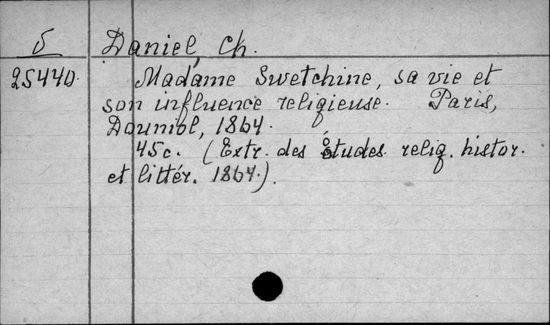 5 Daniel, Ch.
25440. Madame Swetchine, sa vie et
son influence religieuse. Paris,
Douniol, 1864.
45c. (Extr. des Études relig. histor.
et littér. 1864.).